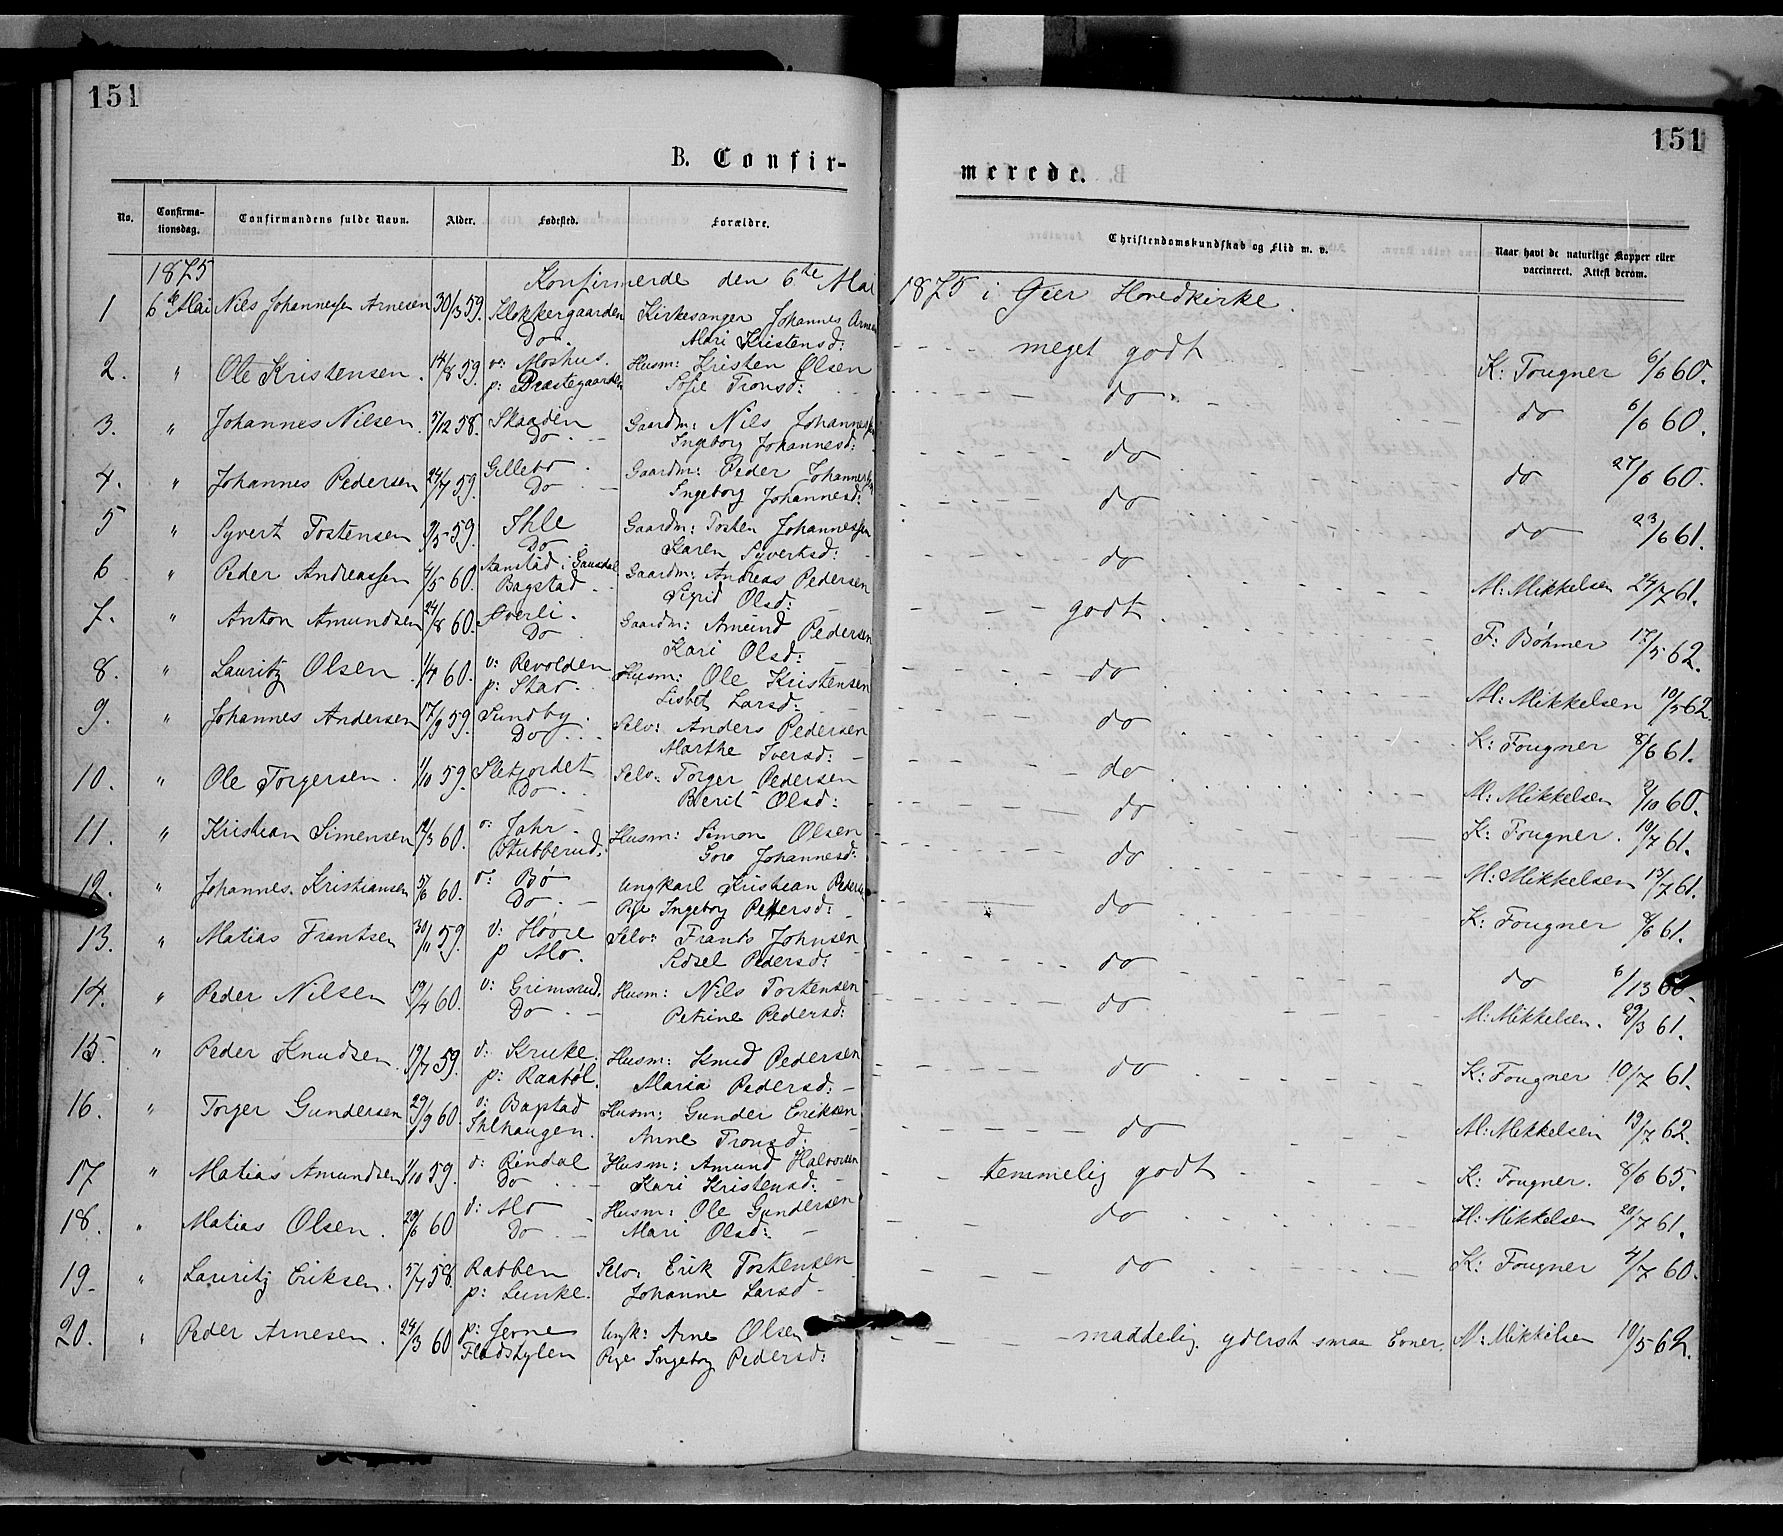 151
151
B. Confir-
merede.
No.
Confirma-
tionsdag.
Confirmandens fulde Navn.
Alder.
Fødested.
Forældre.
Christendomskundskab og Flid m. v.
Naar havt de naturlige Kopper eller
vaccineret. Attest derom.
1875
Konfirmerede den 6te Mai 1875 i Øier Hovedkirke.
1 6te Mai Nils Johannesen Arnesen 30/3 59. Klokkergaarden Kirkesanger Johannes Arnesen meget godt K: Fougner 6/6 60.
Do. Mari Kristensd:
2. " Ole Kristensen. 14/8 59. v: Moshus. Husm: Kristen Olsen do do 6/6 60.
p: Præstegaarden Sofie Tronsd:
3. " Johannes Nilsen. 5/12 58. Skaaden Gaardm: Nils Johannesen do do 27/6 60.
Do Ingeborg Johannesd:
4. " Johannes Pedersen 24/7 59. Gillebo Gaardm: Peder Johannesen do do 23/6 61.
Do Ingeborg Johannesd:
5 " Syvert Tostensen 59. Ihle Gaardm: Tosten Johannessen do M: Mikkelsen 24/7 61.
Do Karen Syvertsd:
6 " Peder Andreassen 4/5 60. Aanstad i Gausdal Gaardm: Andreas Pedersen godt F: Bøhmer 17/5 62.
Bagstad Sigrid Olsd:
7. " Anton Amundsen 24/8 60. Høverli. Gaardm: Amund Pedersen do M: Mikkelsen 10/5 62.
Do Kari Olsd:
8. " Lauritz Olsen 60. v: Revolden Husm: Ole Kristensen do K: Fougner 8/6 61.
p: Stav. Lisbet Larsd:
9. " Johannes Andersen 17/9 59. Sundby. Selv: Anders Pedersen do M: Mikkelsen 60.
Do Marthe Iversd:
10. " Ole Torgersen. 1/10 59. Sletjordet Selv: Torger Pedersen do K: Fougner. 10/7 61.
Do Berit Olsd:
11. " Kristian Simensen 60. v: Jahr Husm: Simon Olsen do M: Mikkelsen 13/7 61.
Stubberud. Goro Johannesd:
12. " Johannes Kristiansen 5/6 60. v: Bø Ungkarl Kristian Pedersen do K: Fougner 8/6 61.
Do Pige Ingeborg Pedersd:
13. " Matias Frantsen 30/11 59. v: Høvre Selv: Frants Johnsen do do 6/13 60
p Mo. Sidsel Pedersd:
14. " Peder Nilsen 19/4 60. v: Grimsrud. Husm: Nils Tostensen do M: Mikkelsen. 29/3 61.
Do. Petrine Pedersd:
15. " Peder Knudsen 19/7 59. v: Kruke. Husm: Knud Pedersen do K: Fougner 10/7 61.
p: Raabøl. Maria Pedersd:
16. " Torger Gundersen 29/9 60. v: Bagstad Husm: Gunder Eriksen do M: Mikkelsen 19/7 62.
Ihlhaugen. Anne Tronsd:
17 " Matias Amundsen 1/10 59. v: Rindal Husm: Amund Halvorsen temmelig godt K: Fougner. 8/6 65.
Do Kari Kristensd:
18. " Matias Olsen. 29/6 60 v: Mo Husm: Ole Gundersen do M: Mikkelsen 20/7 61.
Do Mari Olsd:
19. " Lauritz Eriksen. 5/7 58. Rabben Selv: Erik Tostensen do K: Fougner 4/7 60.
p: Lunke. Johanne Larsd
20. " Peder Arnesen. 24/3 60 p: Jevne Ungk: Arne Olsen maadelig. yderst smaa Evner, M: Mikkelsen 10/5 62.
Pige Ingeborg Pedersd: